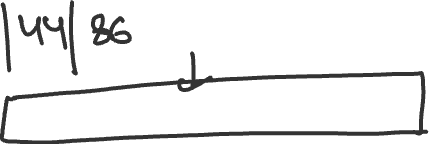 |44| 86